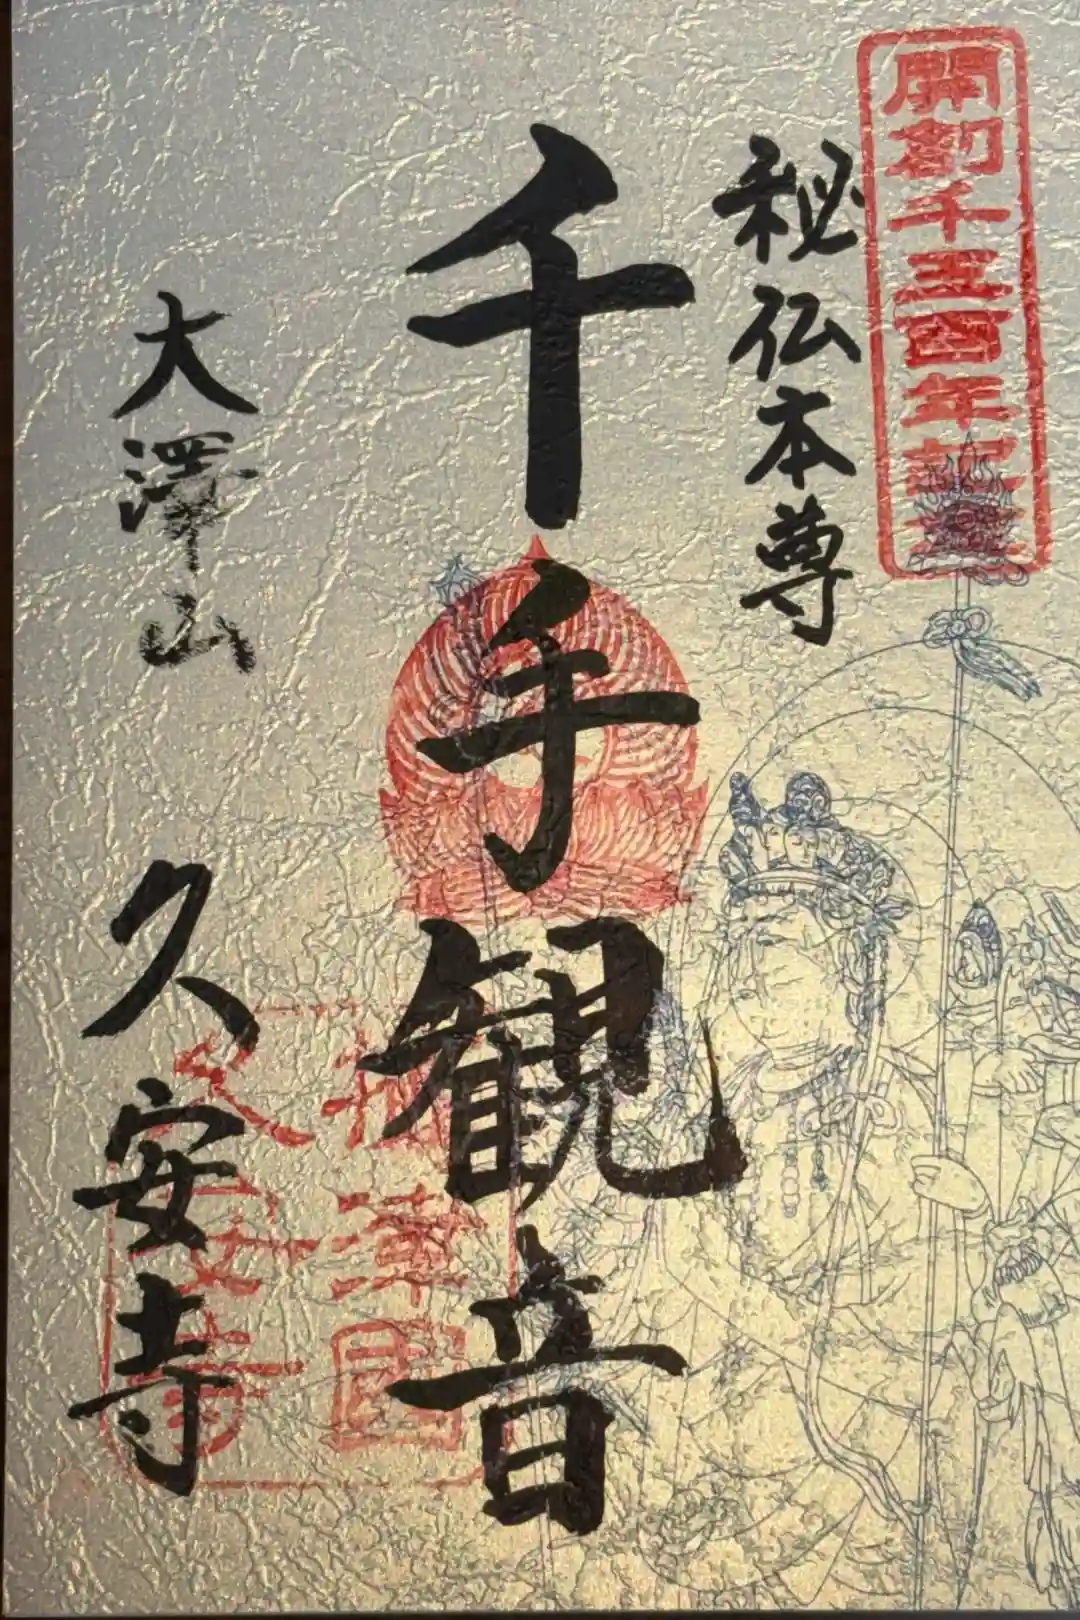 開創千三百年記
秘仏本尊
千手観音
大澤山
久安寺
久安寺